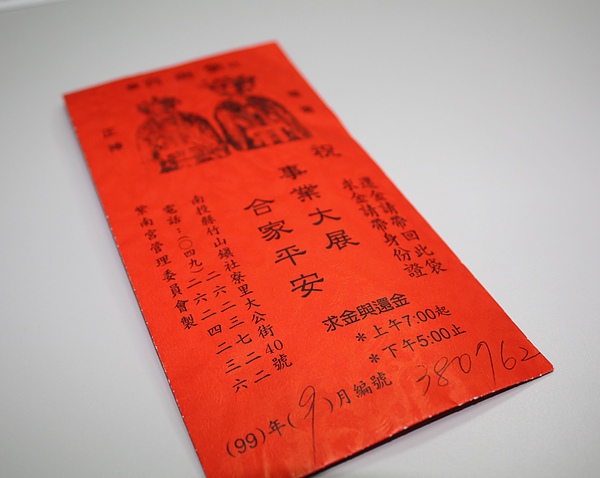 正神
還金請帶回此袋
求金請帶身份證
祝
事業大展
合家平安
南投縣竹山鎮社寮里大公街40號
電話:(〇四九)二六二三七二二
二六二四二三六
紫南宮管理委員會製
求金與還金
*上午7:00起
*下午5:00止
(99)年(9)月編號 380762